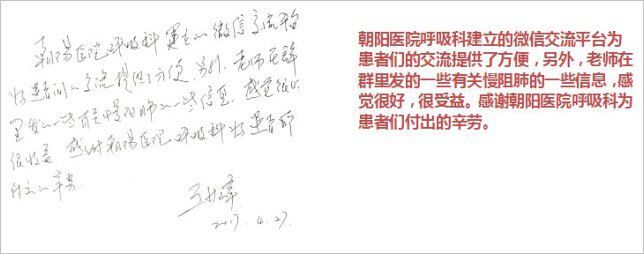 朝陽医院呼吸科建立的微信交流平台
为患者们的交流提供了方便,另外,老师在群
里发的一些有关慢阻肺的一些信息,感觉很好,
很收益。感谢朝陽医院呼吸科为患者所
付出的辛劳。
2017.4.27
朝阳医院呼吸科建立的微信交流平台为
患者们的交流提供了方便,另外,老师在
群里发的一些有关慢阻肺的一些信息,感
觉很好,很受益。感谢朝阳医院呼吸科为
患者们付出的辛劳。